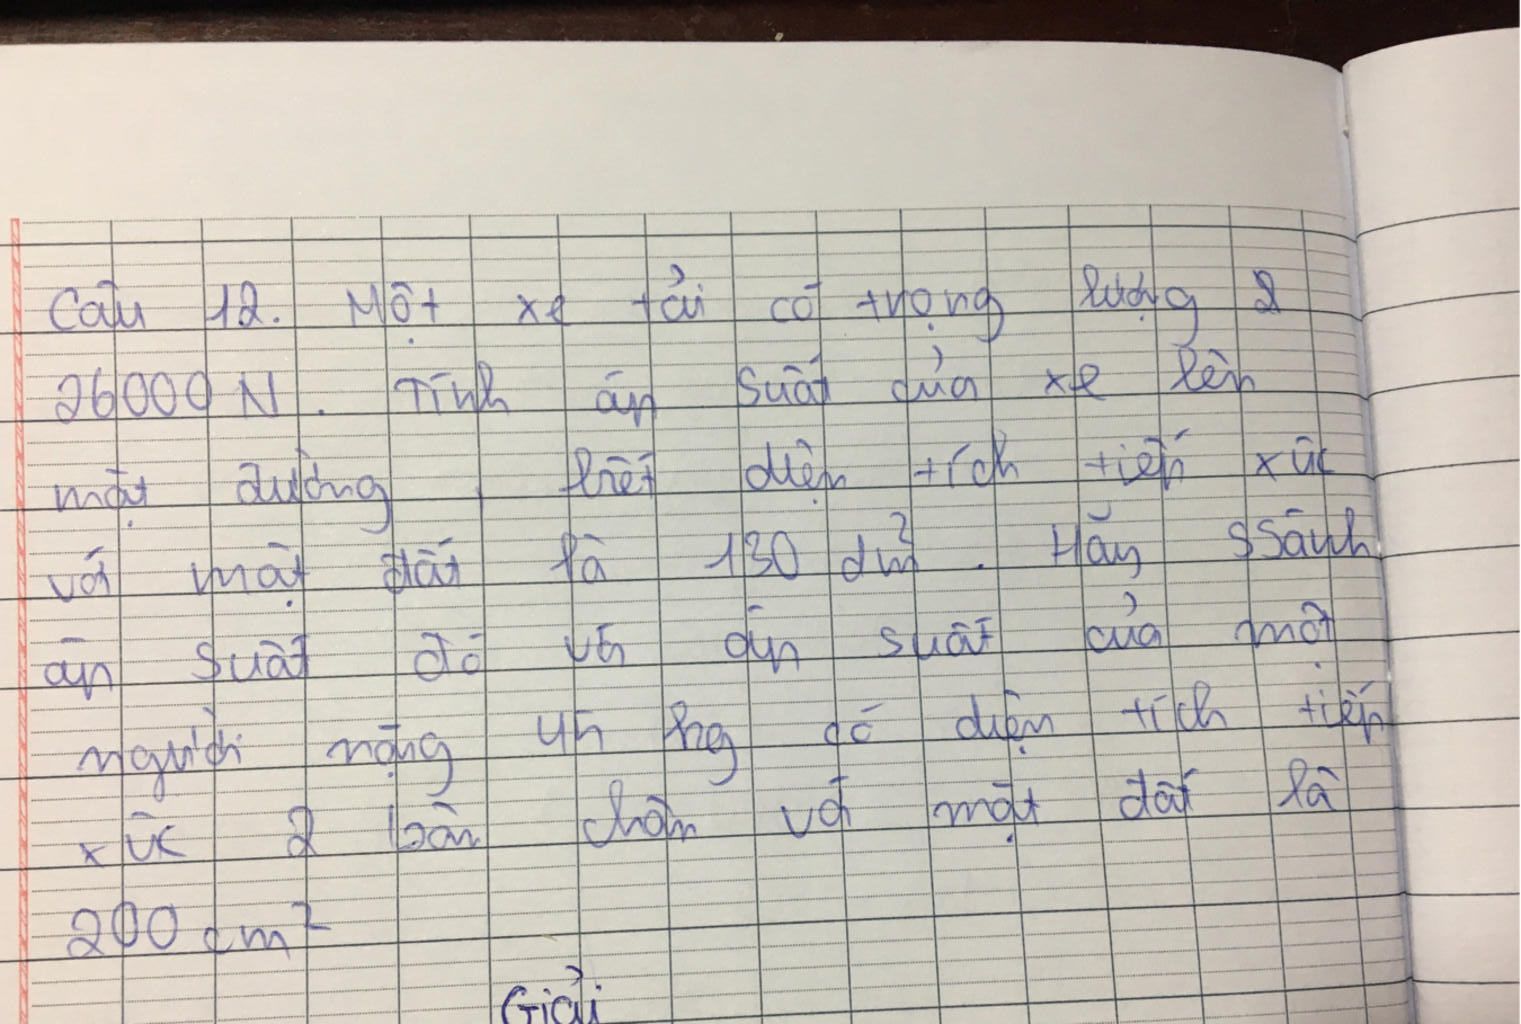 Câu 12. Một xe tải có trọng lượng 2
26000 N. Tính áp suất của xe lên
mặt đường, biết diện tích tiếp xúc
với mặt đất là 130 dm². Hãy sSánh
áp suất đó với áp suất của một
người nặng 45 kg có diện tích tiếp
xúc 2 bàn chân với mặt đất là
200 cm²
Giải